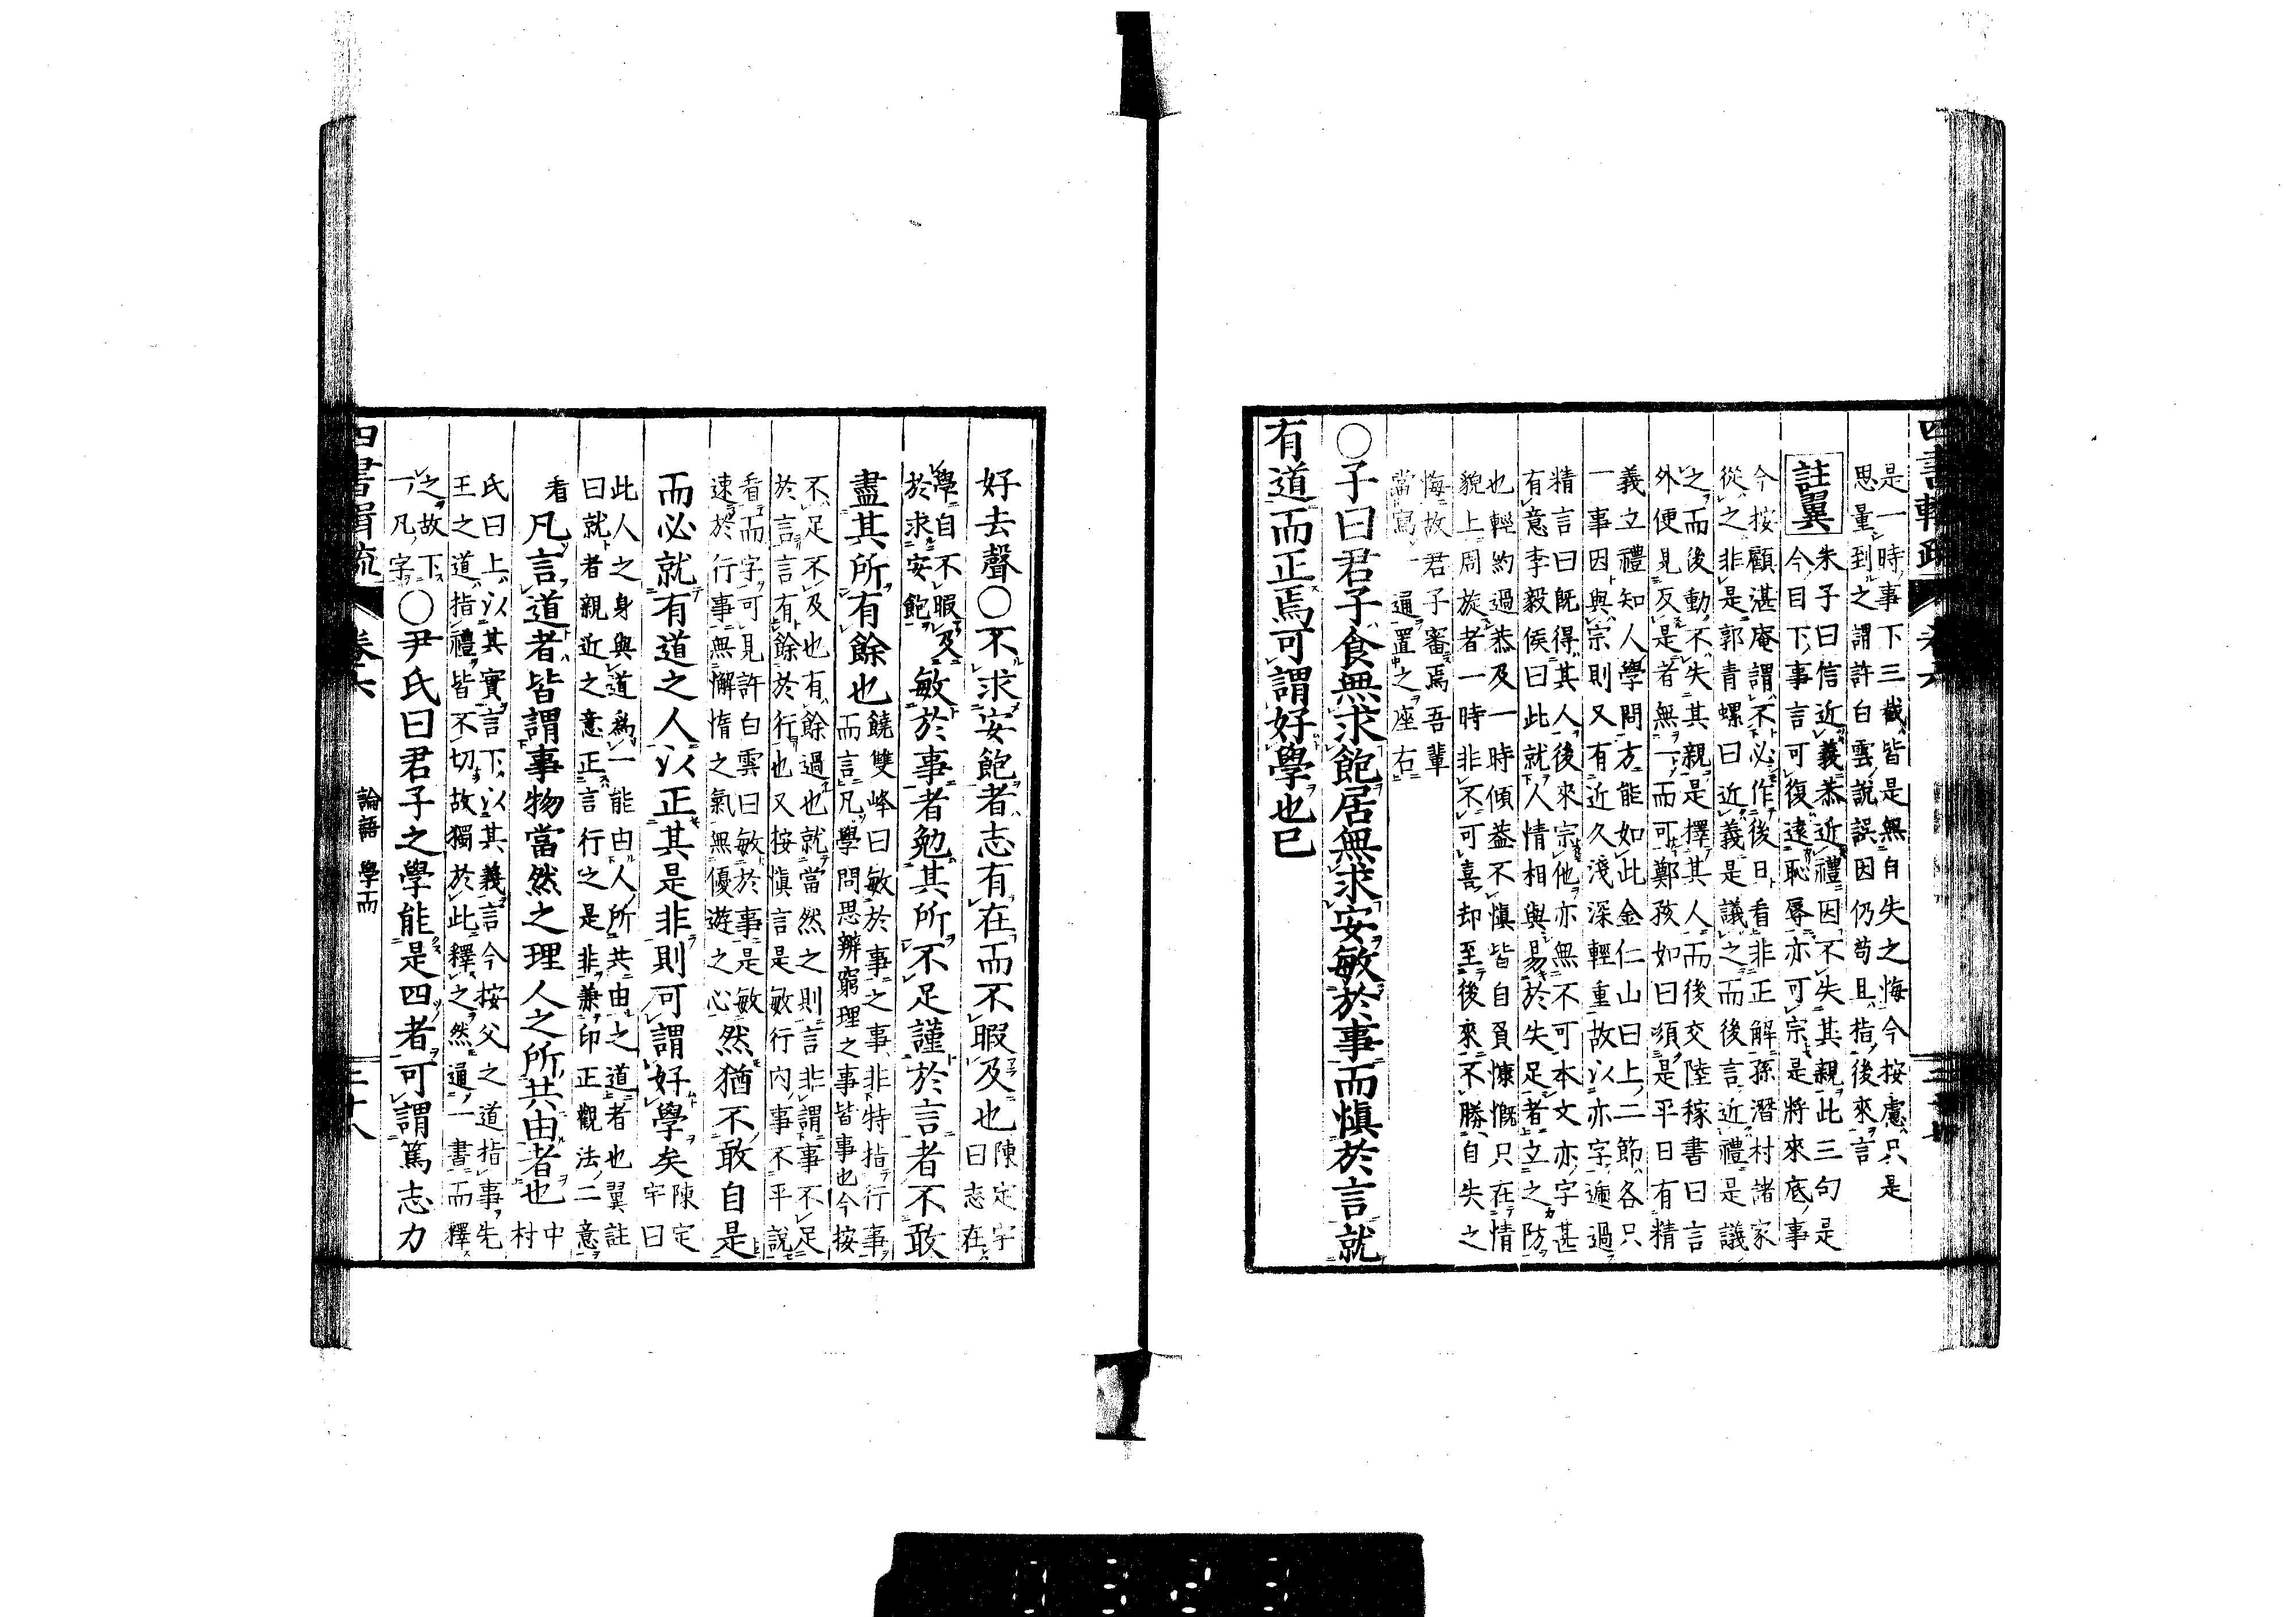 四書輯疏
卷六
是一時事下三截皆是無自失之悔今按慮只是
思量到之謂許白雲說誤因仍苟且指後來言
註翼
朱子曰信近義恭近禮因不失其親此三句是
今目下事言可復遠恥辱亦可宗是將來底事
今按顧湛庵謂不必作後日看非正解孫潛村諸家
從之非是郭青螺曰近義是議之而後言近禮是議
之而後動不失其親是擇其人而後交陸稼書曰言
外便見反是者無一而可鄭孩如曰須是平日有精
義立禮知人學問方能如此金仁山曰上二節各只
一事因與宗則又有近久淺深輕重故以亦字遞過
精言曰既得其人後來宗他亦無不可本文亦字甚
有意李毅侯曰此就人情相與易於失足者立之防
也輕約過恭及一時傾蓋不愼皆自負慷慨只在情
貌上周旋者一時非不可喜却至後來不勝自失之
悔故君子審焉吾輩
當寫一通置之座右
○子曰君子食無求飽居無求安敏於事而愼於言就
有道而正焉可謂好學也已
好去聲○不求安飽者志有在而不暇及也
陳定宇
曰志在
學自不暇及
於求安飽
敏於事者勉其所不足謹於言者不敢
盡其所有餘也
饒雙峰曰敏於事之事非特指行事
而言凡學問思辨窮理之事皆事也今按
不足不及也有餘過也就當然之則言非謂事不足
於言言有餘於行也又按愼言是敏行內事不平說
看而字可見許白雲曰敏於事是敏
速於行事無懈惰之氣無優遊之心
然猶不敢自是
而必就有道之人以正其是非則可謂好學矣
陳定
宇曰
此人之身與道爲一能由人所共由之道者也翼註
曰就者親近之意正言行之是非兼印正觀法二意
看
凡言道者皆謂事物當然之理人之所共由者也
中
村
氏曰上以其實言下以其義言今按父之道指事先
王之道指禮皆不切故獨於此釋之然通一書而釋
之故下
一凡字
○尹氏曰君子之學能是四者可謂篤志力
四書輯疏
卷六
論語 學而
三十八